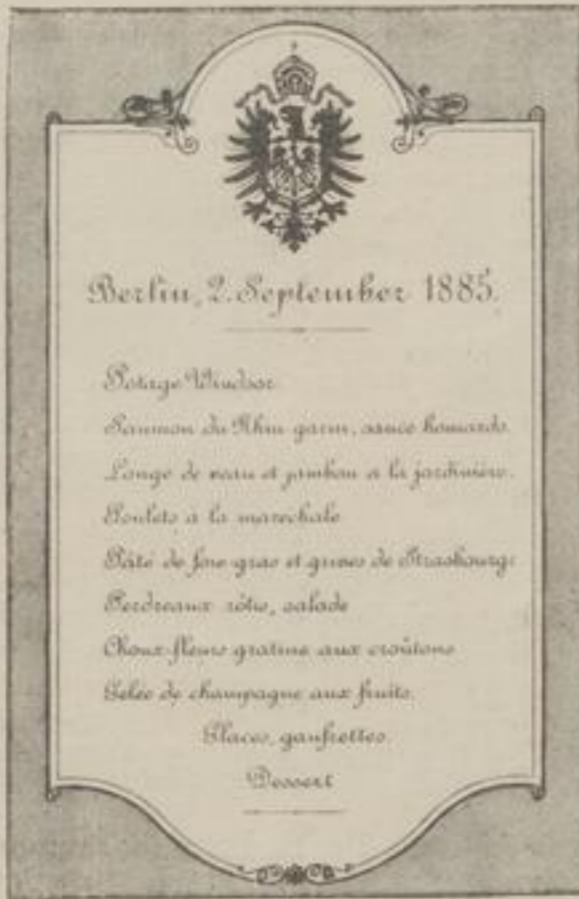 Berlin, 2. September 1885.
Potage Windsor.
Saumon du Rhin garni, sauce homards.
Longe de veau et jambon a la jardinière.
Poulets a la marechale
Pâté de foie gras et grives de Strasbourg
Perdreaux rôtis, salade
Choux-fleurs gratine aux croûtons
Gelée de champagne aux fruits.
Glaces, gaufrettes.
Dessert